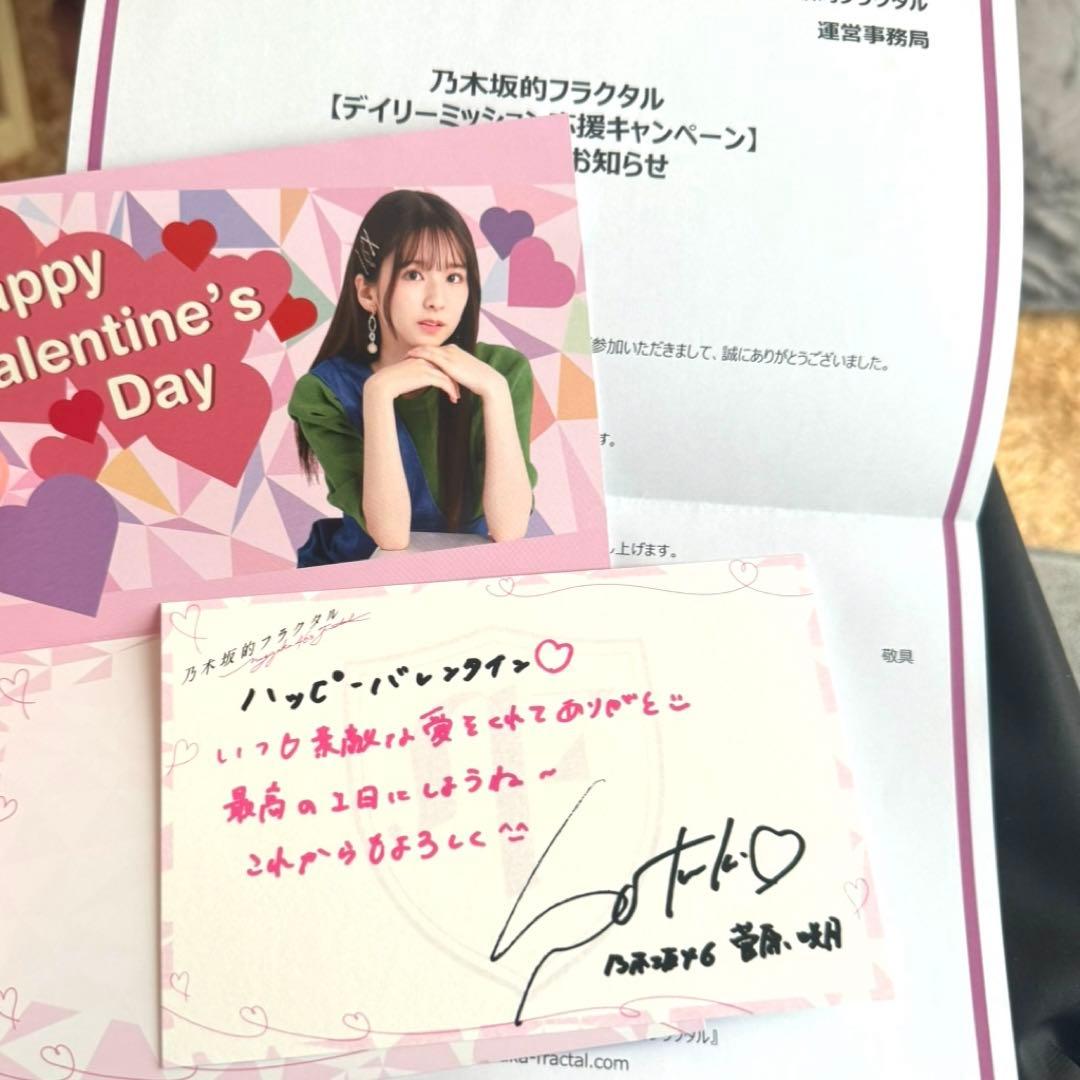 運営事務局
乃木坂的フラクタル
【デイリーミッション応援キャンペーン】
お知らせ
参加いただきまして、誠にありがとうございました。
す。
上げます。
敬具
appy
alentine's
Day
乃木坂的フラクタル
ハッピーバレンタイン♡
いつも素敵な愛をくれてありがと
最高の1日にしようね〜
これからもよろしく^^
Satsuki♡
乃木坂46 菅原咲月
ka-fractal.com